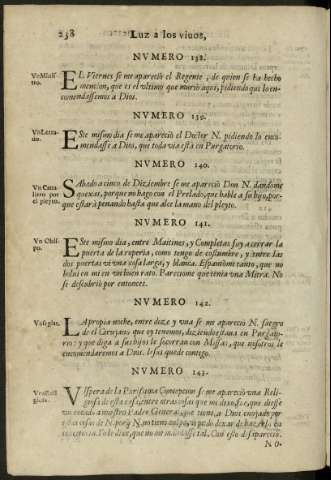 238 Luz a los viuos,
NVMERO 138.
Vn Minis-
tro.
EL Viernes se me apareciò el Regente, de quien se ha hecho
mencion, que es el vltimo que murio aqui, pidiendo que lo en-
comendassemos a Dios.
NVMERO 139.
Vn Letra-
do.
ESte mismo dia se me apareciò el Doctor N. pidiendo lo enco-
mendasse a Dios, que toda via està en Purgatorio.
NVMERO 140.
Vn Caua-
llero por
el pleyto.
SAbado a cinco de Diziembre se me apareciò Don N. dandome
quexas, porque no hago con el Prelado, que hable a su hijo, por-
que estarà penando hasta que alce la mano del pleyto.
NVMERO 141.
Vn Obis-
po.
ESte mismo dia, entre Maitines, y Completas fuy a cerrar la
puerta de la roperia, como tengo de costumbre, y entre las
dos puertas vi vna cosa larga, y blanca. Espantème tanto, que no
bolui en mi en vn buen rato. Pareciome que tenia vna Mitra. No
se descubriò por entonces.
NVMERO 142.
Vn seglar.
LA propia noche, entre doze y vna se me apareciò N. suegro
de el Cirujano que oy tenemos, diziendo estaua en Purgato-
rio: y que diga a sus hijos le socorran con Missas, que nosotros le
encomendaremos a Dios. Iesus quede contigo.
NVMERO 143.
Vna Reli-
giosa.
VIspera de la Purissima Concepcion se me apareciò vna Reli-
giosa de esta casa, entre otras cosas que me dixo fue, que diesse
vn recado a nuestro Padre General, que tiene a Dios enojado por
las cosas de N. por N. no
que no me mandasse tal. Con esto desapareciò.
N 0-